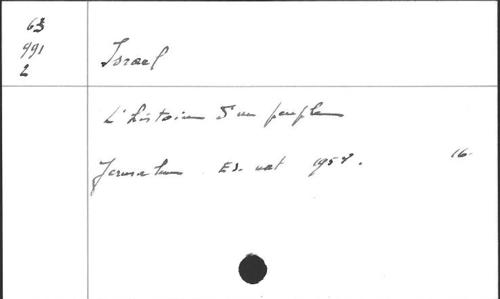 63
991
2
Israel
L'histoire d'un peuple
Jerusalem Ed. nat 1958. 16.